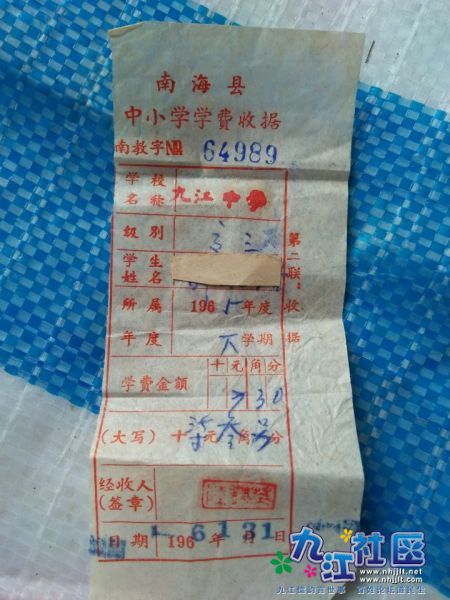 南海县
中小学学费收据
南教字No 64989
学校名称 九江中学
级别 高三
学生姓名
所属年度 196 年度
下学期
学费金额 十元角分
7 3 0
(大写) 十柒元叁角另分
经收人(签章)
日期 196 6年1月31日
第二联：收据
九江社区
www.nhjjlt.net
www.nhjjlt.com